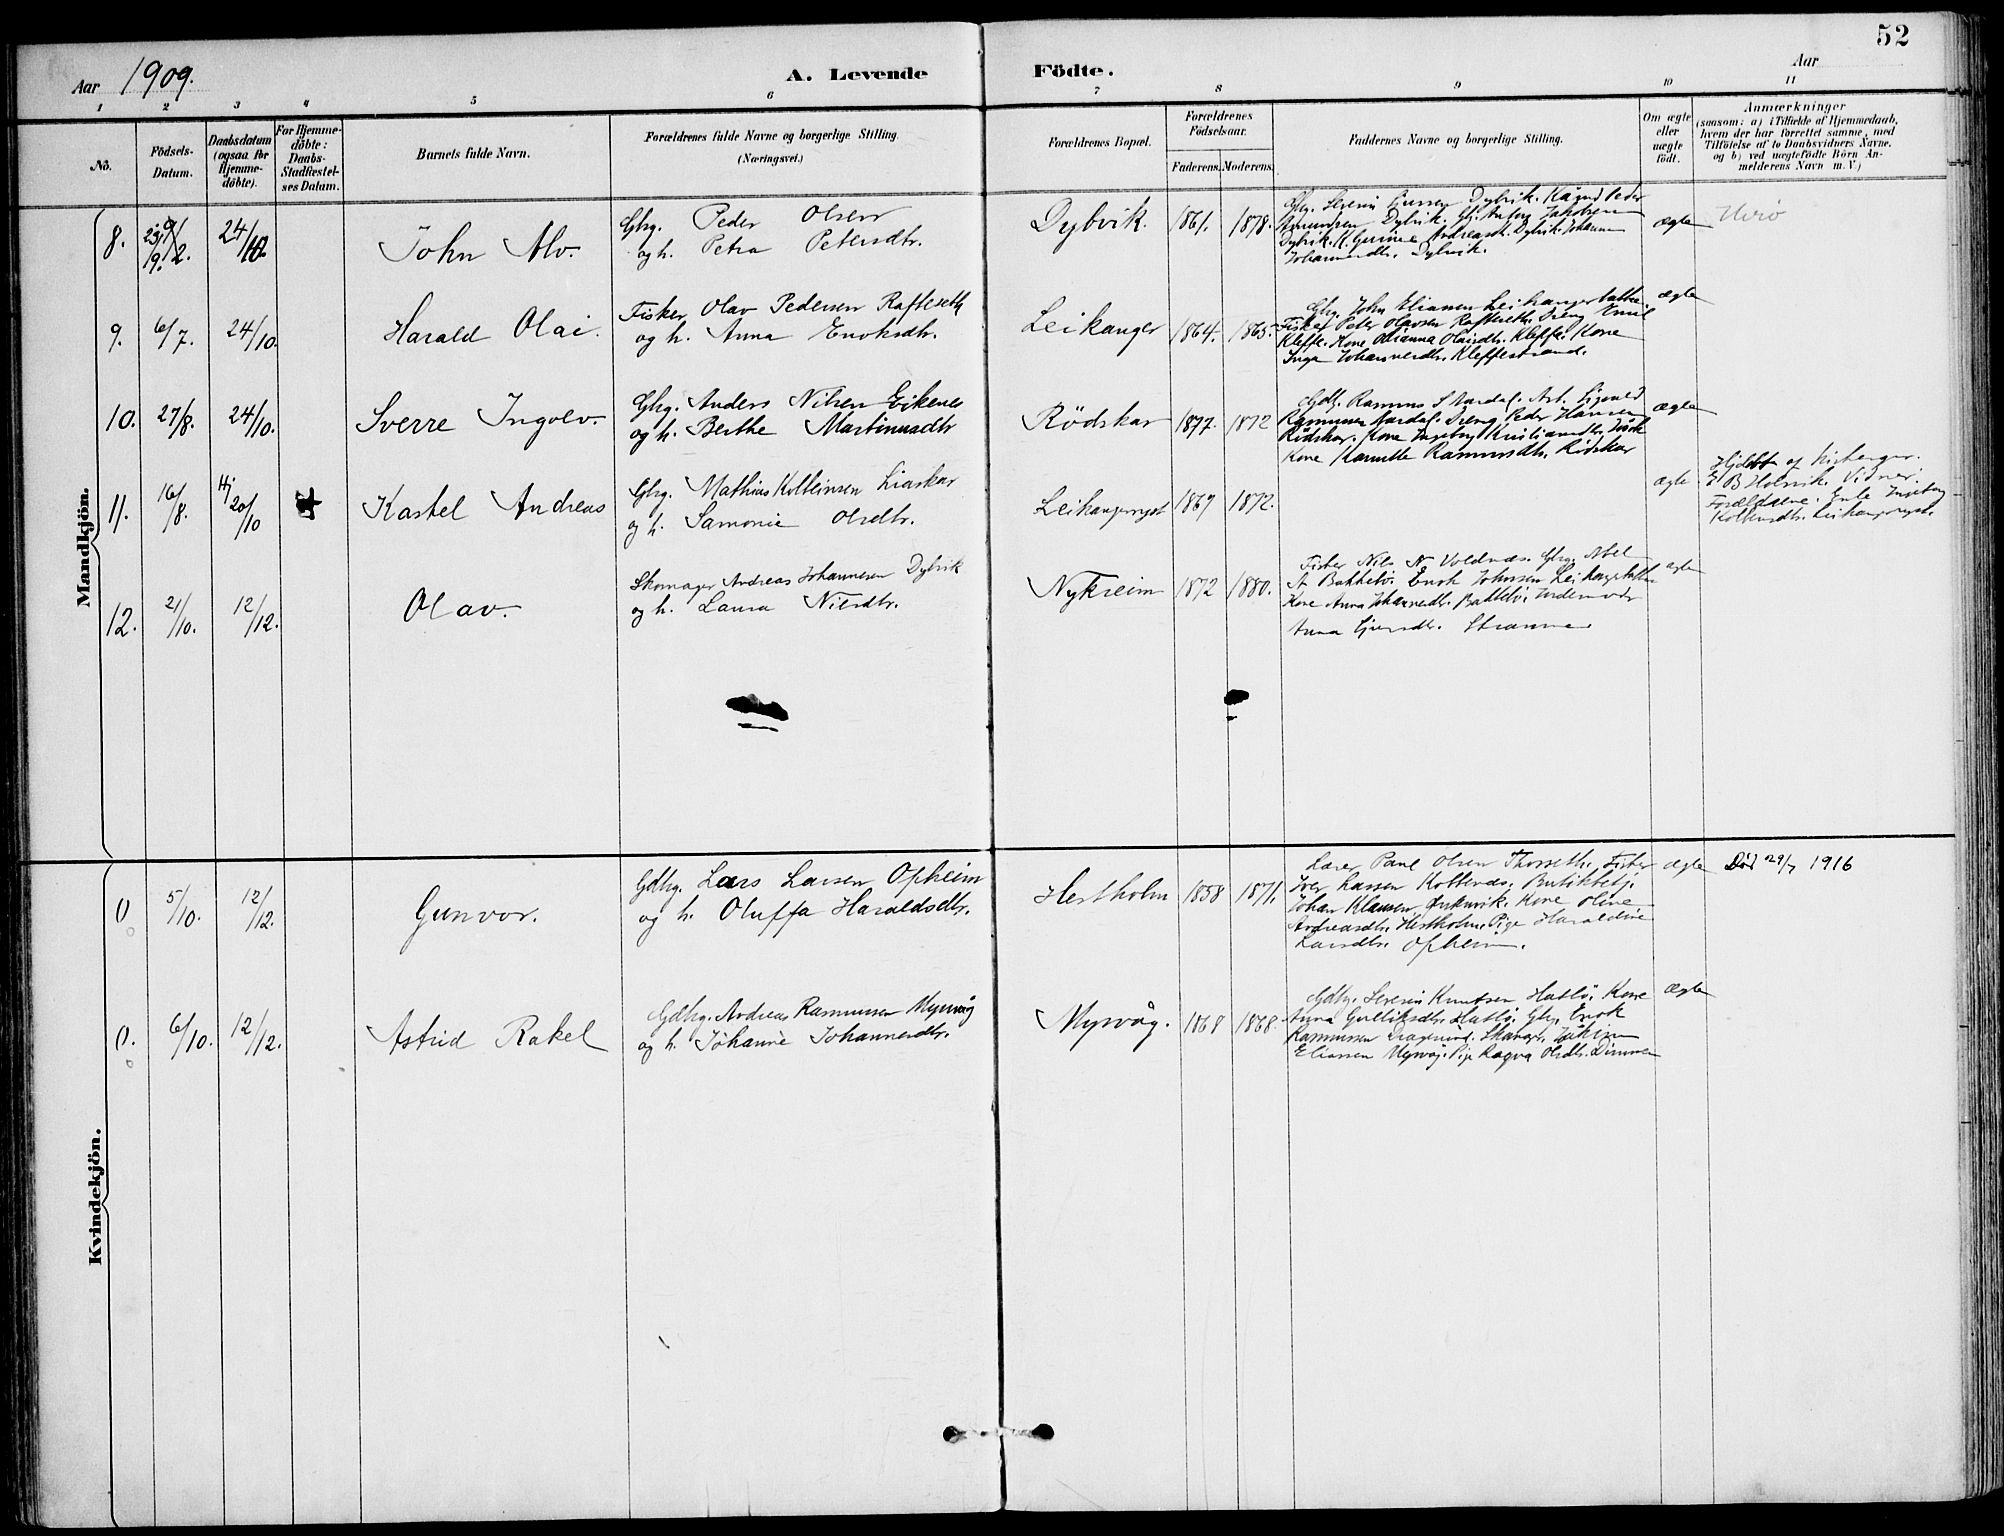 52
Aar 1909.
A. Levende Födte.
Aar
1 2 3 4 5 6 7 8 9 10 11
No.
Födsels-Datum.
Daabsdatum (ogsaa for Hjemme-döbte).
For Hjemme-döbte: Daabs-Stadfæstel-ses Datum.
Barnets fulde Navn.
Forældrenes fulde Navne og borgerlige Stilling. (Næringsvei.)
Forældrenes Bopæl.
Forældrenes Födselsaar.
Faderens. Moderens.
Faddernes Navne og borgerlige Stilling.
Om ægte eller uægte födt.
Anmærkninger
(saasom: a) i Tilfælde af Hjemmedaab,
hvem der har forrettet samme, med
Tilföielse af to Daabsvidners Navne,
og b) ved uægtefödte Börn An-
melderens Navn m. V.)
Mandkjön.
8. 24/10 John Alv.
Gbrg. Peder Olsen
og h. Petra Petersdtr.
Dybvik. 1861. 1878.
Dybvik. Peder
Dybvik. Jakobsen
Dybvik. Dybvik. Johanne
Johannesdtr. Dybvik.
ægte
9. 6/7. 24/10. Harald Olai.
Fisker Olav Pedersen Rafteseth
og h. Anna Enoksdtr.
Leikanger 1864. 1865.
Gbrg. John Eliassen
Fisker Peder Olavsen Rafteseth. Dreng Emil
Kleppe. Kone Olianna Olaisdtr. Kleppe. Kone
Inga Johannesdtr. Kleppestrand.
ægte
10. 27/8. 24/10. Sverre Ingolv.
Gbrg. Anders Nilsen Eikenes
og h. Berthe Martinusdtr
Rödskar 1877. 1872
Rasmus
Rasmussen Dreng Peder Hansen
Rödskar. Kone Ingeborg
Kone Rasmusdtr. Rödskar
ægte
11. 16/8. Hj 20/10 Kastel Andreas
Gbrg. Mathias Kolbeinsen Liaskar
og h. Samonie Olsdtr.
Leikangereget 1867 1872.
ægte
Hjdöbt af
E B Holsvik. Vidner:
Forældrene. Enke Ingeborg
12. 21/10. 12/12. Olav.
Skomager Andreas Johannesen Dybvik
og h. Laura Nilsdtr.
Nykreim 1872 1880.
Fisker Nils N. Voldnæs. Gbrg. Abel
A Bakkebö. Enok Johnsen
Kone Anna Johannesdtr. Bakkebö.
Anna
ægte
Kvindekjön.
0 5/10. 12/12. Gunvor.
Gdbrg. Lars Larsen Opheim
og h. Oluffa Haraldsdtr.
Hestholm 1858 1871.
Paul Olsen Thorseth. Fisker
Iver Larsen
Johan Klausen Kone Oline
Andreasdtr. Hestholm. Pige Haraldine
Larsdtr. Opheim.
ægte Död 29/7 1916
0. 6/10. 12/12. Astrid Rakel
Gdbrg. Andreas Rasmussen Myrvåg
og h. Johanne Johannesdtr.
Myrvåg. 1868 1868.
Gdbrg. Severin Knutsen Hatlö. Kone
Anna Gulliksdtr. Hatlö. Gbrg. Enok
Rasmussen Dragsund.
Eliassen Myrvåg. Pige Ragna Olsdtr. Dimmen
ægte